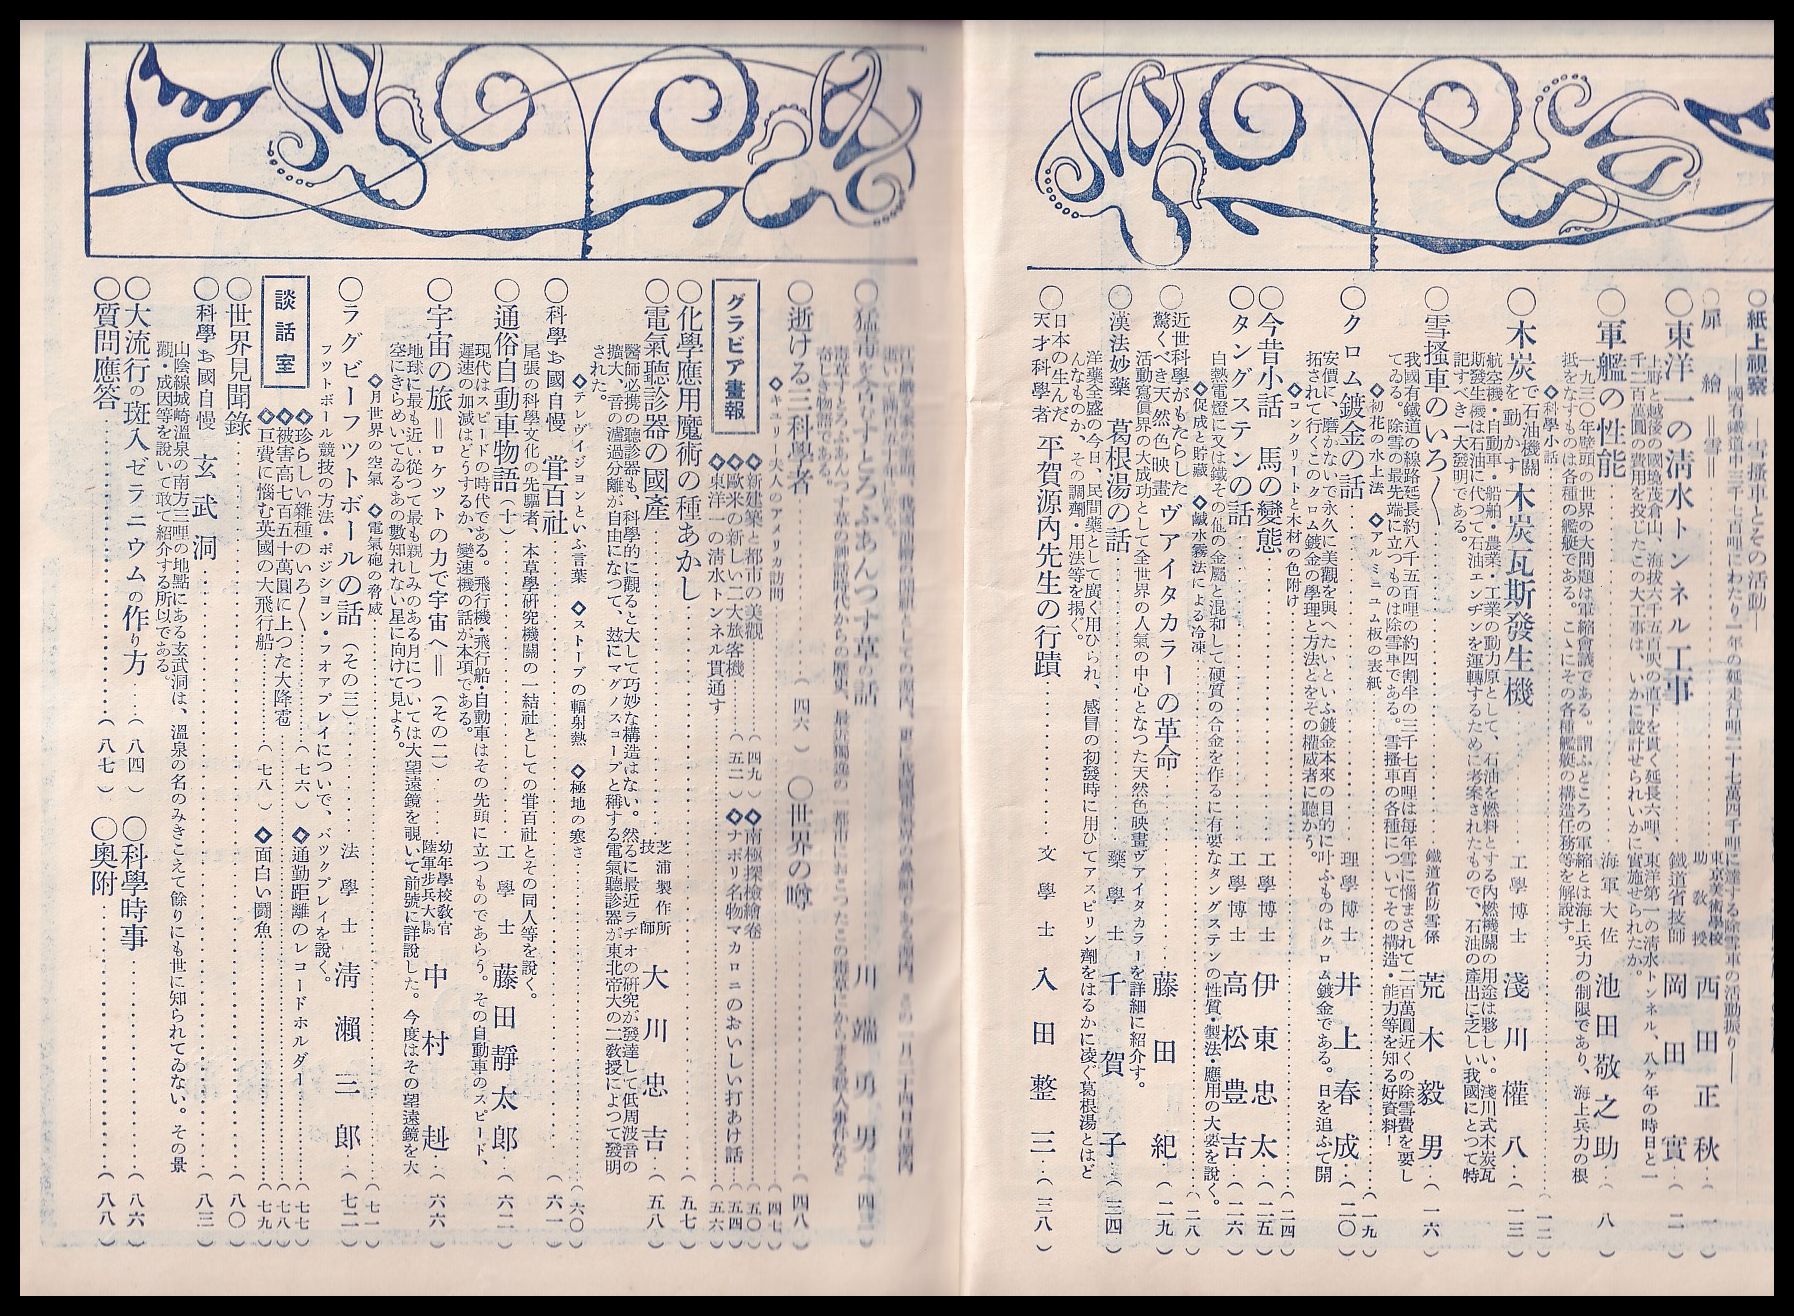 〇紙上視察　―雪搔車とその活動―
―國有鐵道中三千七百哩にわたり一年の延走行哩二十七萬四千哩に達する除雪車の活動振り―
〇扉　繪　＝雪＝‥‥東京美術學校助教授　西田正秋‥（一）
〇東洋一の淸水トンネル工事‥‥鐵道省技師　岡田　實‥（二）
上野と越後の國境茂倉山、海拔六千五百呎の直下を貫く延長六哩、東洋第一の淸水トンネル、八ケ年の時日と一
千二百萬圓の費用を投じたこの大工事は、いかに設計せられいかに實施せられたか。
〇軍艦の性能‥‥海軍大佐　池田敬之助‥（八）
一九三〇年壁頭の世界の大問題は軍縮會議である。謂ふところの軍縮とは海上兵力の制限であり、海上兵力の根
抵をなすものは各種の艦艇である。こゝにその各種艦艇の構造任務等を解說す。
◇科學小話‥‥（一二）
〇木炭で石油機關を動かす　木炭瓦斯發生機‥‥工學博士　淺川權八‥（一三）
航空機・自動車・船舶・農業・工業の動力原として、石油を燃料とする內燃機關の用途は夥しい。淺川式木炭瓦
斯發生機は石油に代つて石油エンヂンを運轉するために考案されたもので、石油の產出に乏しい我國にとつて特
記すべき一大發明である。
〇雪搔車のいろ〱‥‥鐵道省防雪係　荒木毅男‥（一六）
我國有鐵道の線路延長約八千五百哩の約四割半の三千七百哩は每年雪に惱まされて二百萬圓近くの除雪費を要し
てゐる。除雪の最先端に立つものは除雪車である。雪搔車の各種についてその構造・能力等を知る好資料！
◇初花の水上法　◇アルミニユム板の表紙‥‥（一九）
〇クロム鍍金の話‥‥理學博士　井上春成‥（二〇）
安價に、磨かないで永久に美觀を與へたいといふ鍍金本來の目的に叶ふものはクロム鍍金である。日を追ふて開
拓されて行くこのクロム鍍金の學理と方法とをその權威者に聽かう。
◇コンクリートと木材の色附け‥‥（二四）
〇今昔小話　馬の變態‥‥工學博士　伊東忠太‥（二五）
〇タングステンの話‥‥工學博士　高松豊吉‥（二六）
白熱電燈に又は鐵その他の金屬と混和して硬質の合金を作るに有要なタングステンの性質・製法・應用の大要を說く。
◇促成と貯藏　◇鹹水霧法による冷凍‥‥（二八）
〇近世科學がもたらした驚くべき天然色映畫　ヴアイタカラーの革命‥‥藤田　紀‥（二九）
活動寫眞界の大成功として全世界の人氣の中心となつた天然色映畫ヴアイタカラーを詳細に紹介す。
〇漢法妙藥　葛根湯の話‥‥藥學士　千賀　子‥（三四）
洋藥全盛の今日、民間藥として廣く用ひられ、感冒の初發時に用ひてアスピリン劑をはるかに凌ぐ葛根湯とはど
んなものか、その調劑・用法等を揭ぐ。
〇日本の生んだ天才科學者　平賀源內先生の行蹟‥‥文學士　入田整三‥（三八）
〇猛毒を含すとろふあんつす草の話‥‥川端勇男‥（四二）
毒草すとろふあんつす草の神話時代からの歷史、最近獨逸の一都市におこつたこの毒草にからまる殺人事件など
奇しき物語である。
◇キユリー夫人のアメリカ訪問‥‥（四七）
〇逝ける三科學者‥‥（四六）〇世界の噂‥‥（四八）
グラビア畫報
◇新建築と都市の美觀‥‥（四九）◇南極探檢繪卷‥‥（五〇）
◇歐米の新しい二大旅客機‥‥（五二）◇ナポリ名物マカロニのおいしい打あけ話‥‥（五四）
◇東洋一の淸水トンネル貫通す‥‥（五六）
〇化學應用魔術の種あかし‥‥（五七）
〇電氣聽診器の國產‥‥芝浦製作所技師　大川忠吉‥（五八）
醫師必携の聽診器も、科學的に觀ると大して巧妙な構造はない。然るに最近ラヂオの硏究が發達して低周波音の
擴大、音の濾過分離が自由になつて、玆にマグノスコープと稱する電氣聽診器が東北帝大の二敎授によつて發明
された。
◇テレヴイジヨンといふ言葉　◇ストーブの輻射熱　◇極地の寒さ‥‥（六〇）
〇科學お國自慢　甞百社‥‥（六一）
尾張の科學文化の先驅者、本草學硏究機關の一結社としての甞百社とその同人等を說く。
〇通俗自動車物語（十）‥‥工學士　藤田靜太郎‥（六二）
現代はスピードの時代である。飛行機・飛行船・自動車はその先頭に立つものであらう。その自動車のスピード、
遲速の加減はどうするか、變速機の話が本項である。
〇宇宙の旅　＝ロケツトの力で宇宙へ＝（その二）‥‥幼年學校敎官陸軍步兵大尉　中村　赳‥（六六）
地球に最も近い從つて最も親しみのある月については大望遠鏡を覗いて前號に詳說した。今度はその望遠鏡を大
空にきらめいてゐるあの數知れない星に向けて見よう。
◇月世界の空氣　◇電氣砲の脅威‥‥（七一）
〇ラグビーフツトボールの話（その三）‥‥法學士　淸瀨三郎‥（七二）
フツトボール競技の方法・ポジシヨン・フオアプレイについで、バツクプレイを說く。
談話室
◇珍らしい雜種のいろ〱‥‥（七六）◇通勤距離のレコードホルダー‥‥（七七）
◇被害高七百五十萬圓に上つた大降雹‥‥（七八）
◇巨費に惱む英國の大飛行船‥‥（七八）◇面白い鬪魚‥‥（七九）
〇世界見聞錄‥‥（八〇）
〇科學お國自慢　玄武洞‥‥（八三）
山陰線城崎溫泉の南方二哩の地點にある玄武洞は、溫泉の名のみきこえて餘りにも世に知られてゐない。その景
觀・成因等を說いて敢て紹介する所以である。
〇大流行の斑入ゼラニウムの作り方‥‥（八四）〇科學時事‥‥（八六）
〇質問應答‥‥（八七）〇奧附‥‥（八八）